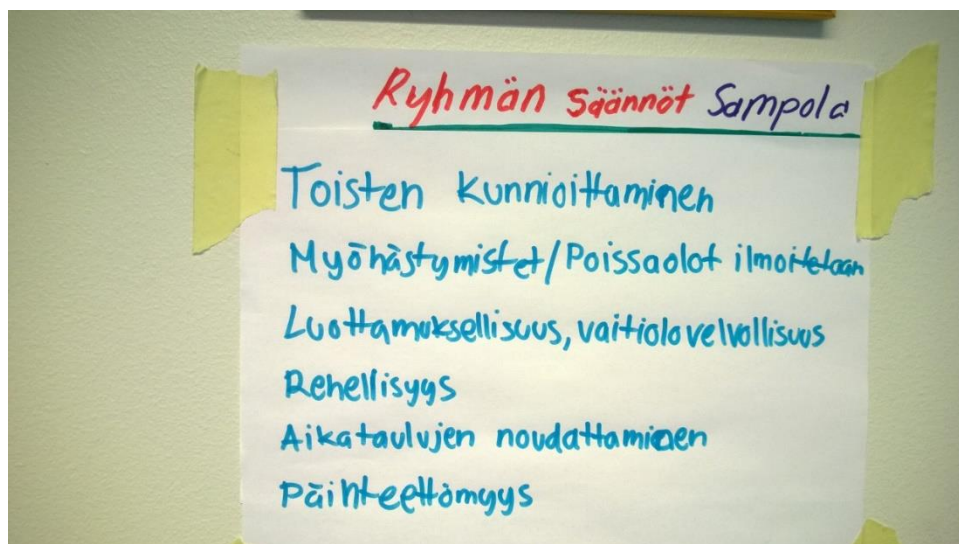 Ryhmän säännöt Sampola
Toisten kunnioittaminen
Myöhästymistet/Poissaolot ilmoitetaan
Luottamuksellisuus, vaitiolovelvollisuus
Rehellisyys
Aikataulujen noudattaminen
Päihteettömyys